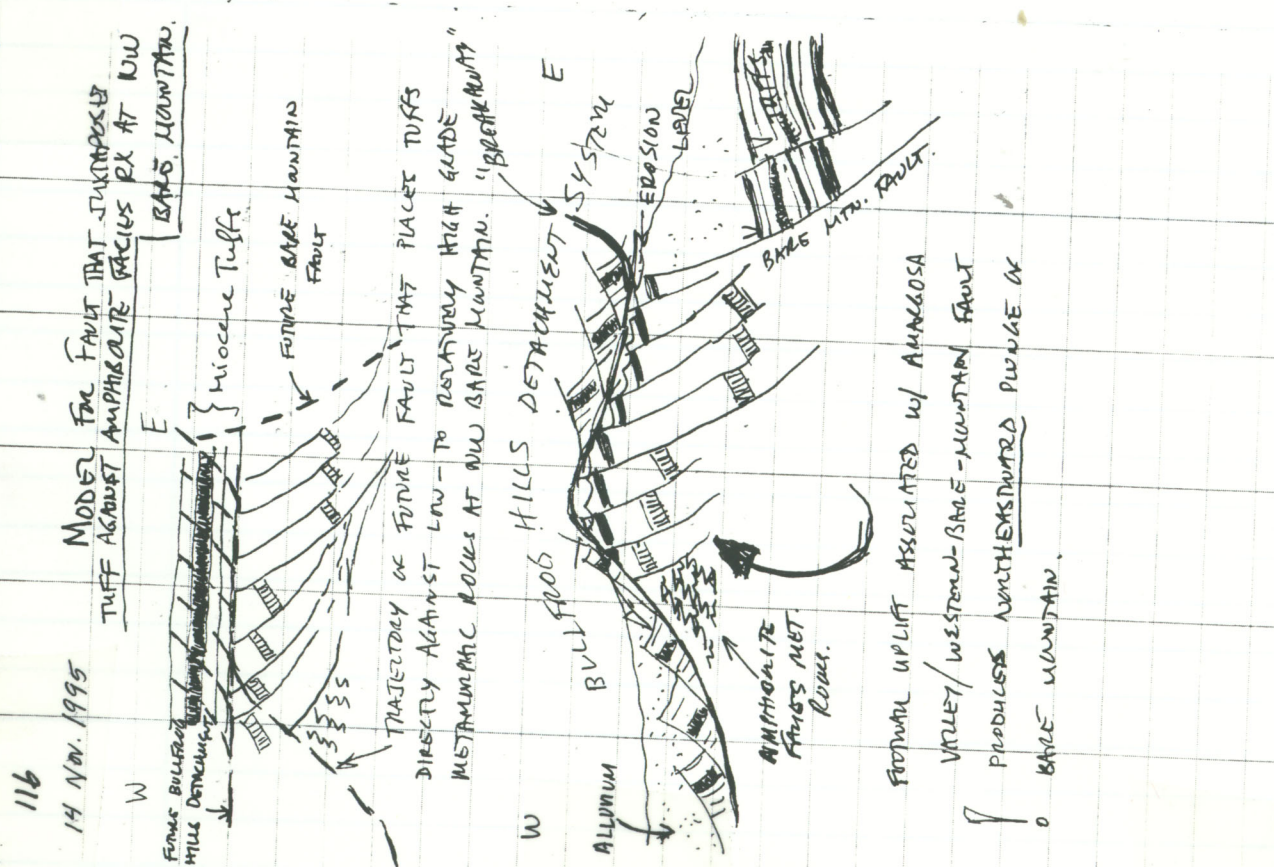 116
14 NOV. 1995
MODEL FOR FAULT THAT JUXTAPOSES
TUFF AGAINST AMPHIBOLITE FACIES RX AT NW
BARE MOUNTAIN.
W
E
FUTURE BULLFROG
HILLS DETACHMENT
} Miocene Tuffs
FUTURE BARE MOUNTAIN
FAULT
TRAJECTORY OF FUTURE FAULT THAT PLACES TUFFS
DIRECTLY AGAINST LOW- TO RELATIVELY HIGH GRADE
METAMORPHIC ROCKS AT NW BARE MOUNTAIN.
"BREAKAWAY"
W
E
BULLFROG HILLS DETACHMENT SYSTEM
EROSION
LEVEL
TUFFS
ALLUVIUM
BARE MTN. FAULT.
AMPHIBOLITE
FACIES MET.
ROCKS.
FOOTWALL UPLIFT ASSOCIATED W/ AMARGOSA
VALLEY/WESTERN-BARE-MOUNTAIN FAULT
PRODUCES NORTHEASTWARD PLUNGE OF
BARE MOUNTAIN.